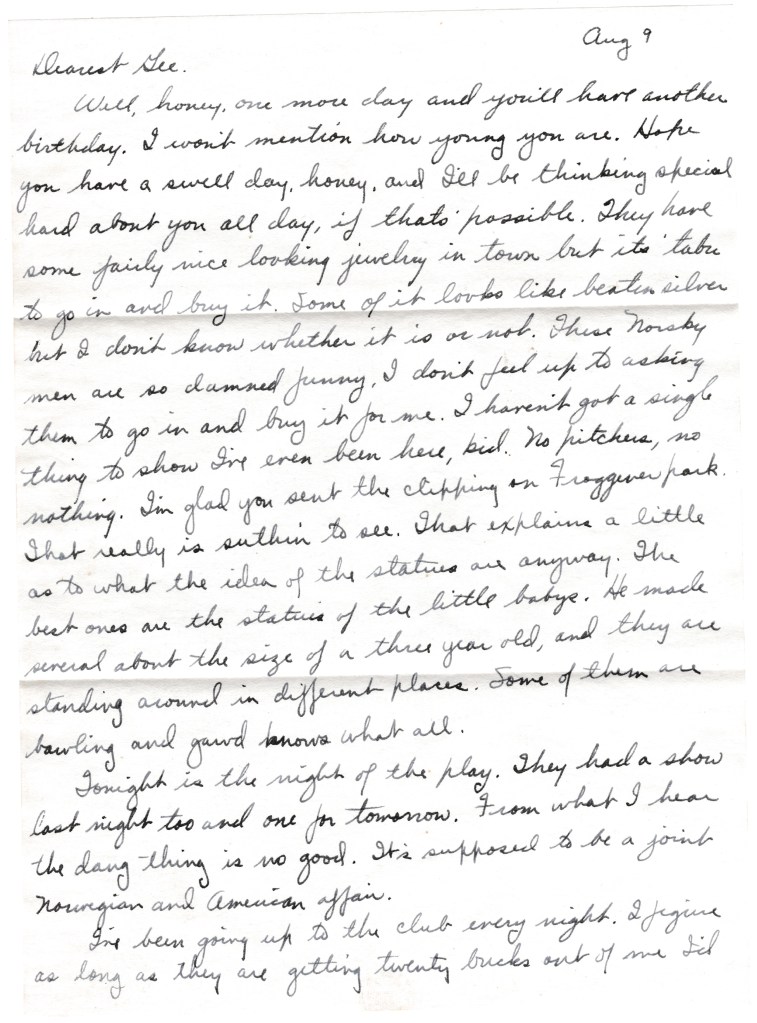 Aug 9
Dearest Gee.
Well, honey, one more day and you'll have another
birthday. I won't mention how young you are. Hope
you have a swell day, honey, and I'll be thinking special
hard about you all day, if thats' possible. They have
some fairly nice looking jewelry in town but its' tabu
to go in and buy it. Some of it looks like beaten silver
but I don't know whether it is or not. These Norsky
men are so damned funny, I don't feel up to asking
them to go in and buy it for me. I haven't got a single
thing to show I've even been here, kid. No pitchers, no
nothing. I'm glad you sent the clipping on Froggener park.
That really is suthin to see. That explains a little
as to what the idea of the statues are anyway. The
best ones are the statues of the little babys. He made
several about the size of a three year old, and they are
standing around in different places. Some of them are
bawling and gawd knows what all.
Tonight is the night of the play. They had a show
last night too and one for tomorrow. From what I hear
the dang thing is no good. It's supposed to be a joint
Norwegian and American affair.
I've been going up to the club every night. I figure
as long as they are getting twenty bucks out of me I'd